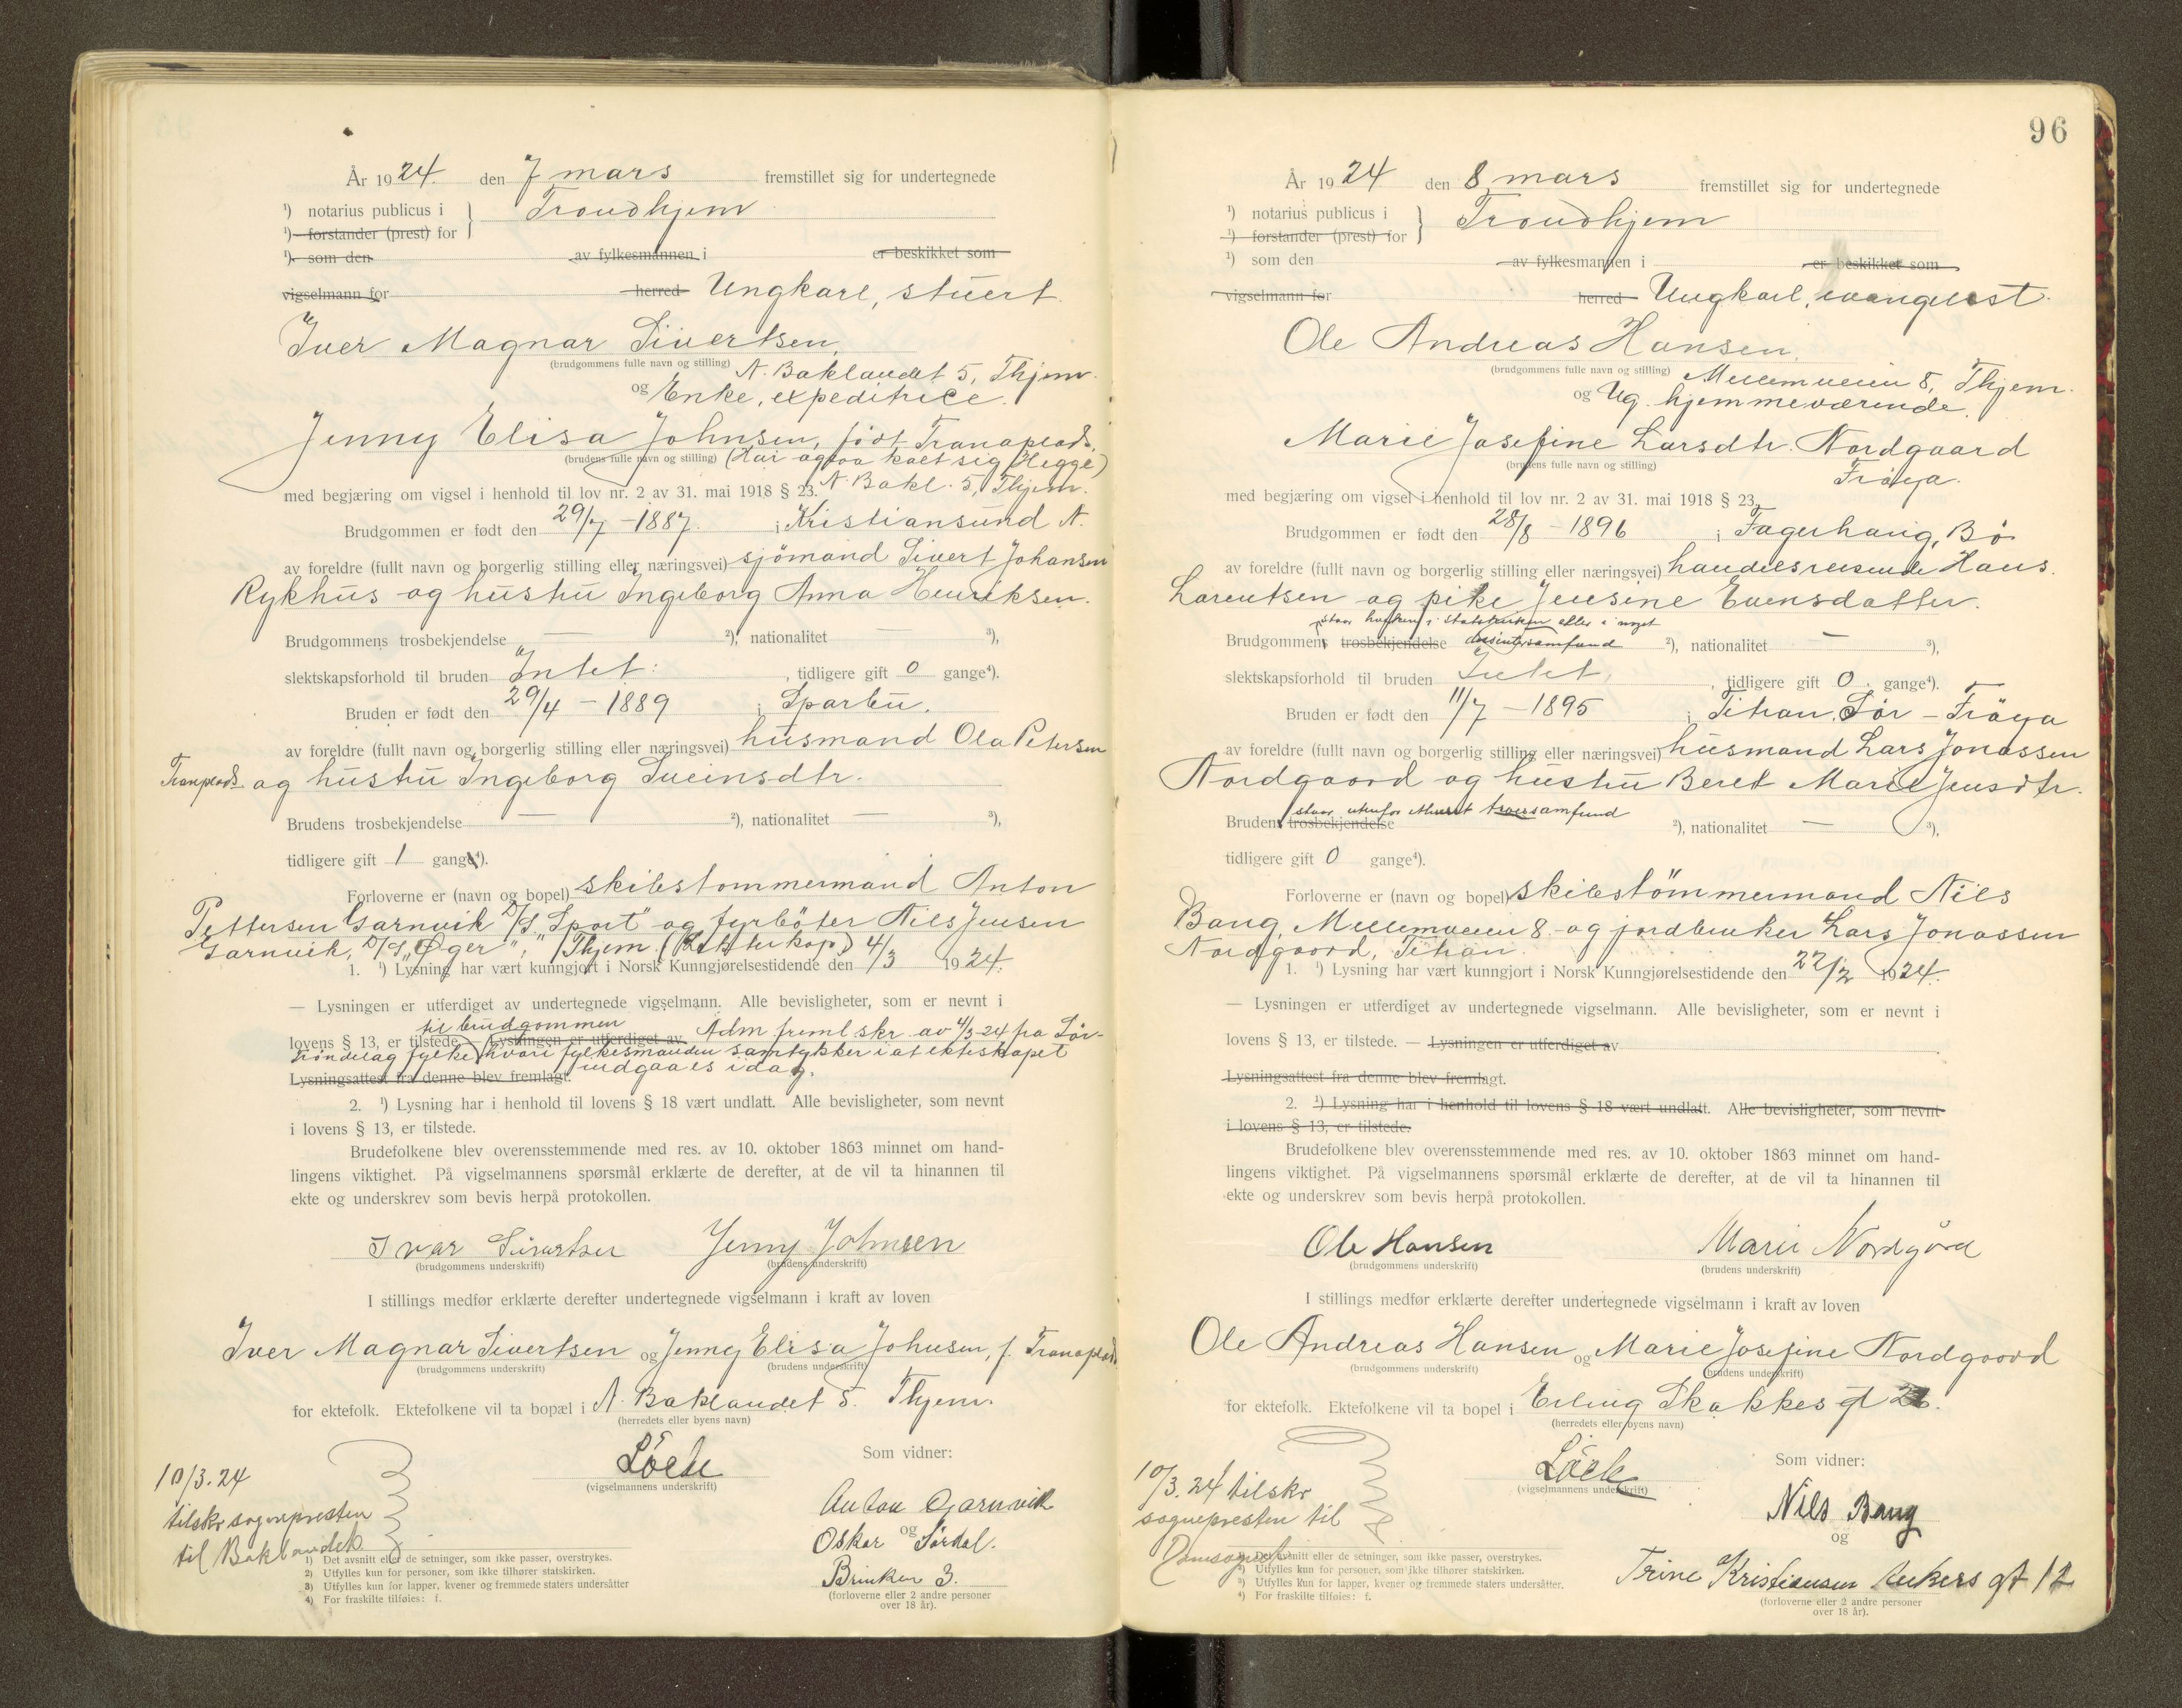 År 1924. den 7 mars fremstillet sig for undertegnede
¹) notarius publicus i Trondhjem
¹) forstander (prest) for
¹) som den av fylkesmannen i er beskikket som
vigselmann for herred Ungkarl, stuert
Iver Magnar Sivertsen,
(brudgommens fulle navn og stilling) N. Baklandet 5, Thjem.
og Enke, expeditrice.
Jenny Elisa Johnsen, født Tranaplads.
(brudens fulle navn og stilling) (Har ogsaa kalt sig Hegge)
med begjæring om vigsel i henhold til lov nr. 2 av 31. mai 1918 § 23. N. Bakl. 5, Thjem.
Brudgommen er født den 29/7 - 1887. i Kristiansund N.
av foreldre (fullt navn og borgerlig stilling eller næringsvei) sjömand Sivert Johansen
Rykhus og hustru Ingeborg Anna Henriksen.
Brudgommens trosbekjendelse — ²), nationalitet — ³),
slektskapsforhold til bruden Intet. , tidligere gift 0 gange⁴).
Bruden er født den 29/4 - 1889 i Sparbu.
av foreldre (fullt navn og borgerlig stilling eller næringsvei) husmand Ola Petersen
Tranplads og hustru Ingeborg Sveinsdtr.
Brudens trosbekjendelse — ²), nationalitet — ³),
tidligere gift 1 gange⁴).
Forloverne er (navn og bopel) skibstommermand Anton
Pettersen Garnvik D/S "Sport" og fyrböter Nils Jensen
Garnvik, D/S "Øger", Thjem. 4/3 1924.
1. ¹) Lysning har vært kunngjort i Norsk Kunngjørelsestidende den
— Lysningen er utferdiget av undertegnede vigselmann. Alle bevisligheter, som er nevnt i
til brudgommen
lovens § 13, er tilstede. — Lysningen er utferdiget av Adm freml skr. av 4/3-24 fra Sör-
Tröndelag fylke hvori fylkesmanden samtykker i at ekteskapet
Lysningsattest fra denne blev fremlagt. indgaaes idag.
2. ¹) Lysning har i henhold til lovens § 18 vært undlatt. Alle bevisligheter, som nevnt
i lovens § 13, er tilstede.
Brudefolkene blev overensstemmende med res. av 10. oktober 1863 minnet om hand-
lingens viktighet. På vigselmannens spørsmål erklærte de derefter, at de vil ta hinannen til
ekte og underskrev som bevis herpå protokollen.
Ivar Sivertsen Jenny Johnsen
(brudgommens underskrift) (brudens underskrift)
I stillings medfør erklærte derefter undertegnede vigselmann i kraft av loven
Iver Magnar Sivertsen og Jenny Elisa Johnsen, f. Tranaplads
(brudgommens underskrift) (brudens underskrift)
for ektefolk. Ektefolkene vil ta bopæl i N. Baklandet 5. Thjem.
(herredets eller byens navn)
Löck Som vidner:
(vigselmannens underskrift)
10/3.24
tilskr sognepresten
til Baklandet
Anton Garnvik
og
Oskar Sördal.
Brinken 3.
(forloverne eller 2 andre personer
over 18 år).
1) Det avsnitt eller de setninger, som ikke passer, overstrykes.
2) Utfylles kun for personer, som ikke tilhører statskirken.
3) Utfylles kun for lapper, kvener og fremmede staters undersåtter
4) For fraskilte tilføies: f.
96
År 1924 den 8 mars fremstillet sig for undertegnede
¹) notarius publicus i Trondhjem
¹) forstander (prest) for
¹) som den av fylkesmannen i er beskikket som
vigselmann for herred Ungkarl, evangelist.
Ole Andreas Hansen,
(brudgommens fulle navn og stilling) Mellemveien 8, Thjem.
og Ug. hjemmeværende.
Marie Josefine Larsdtr. Nordgaard
(brudens fulle navn og stilling) Fröya.
med begjæring om vigsel i henhold til lov nr. 2 av 31. mai 1918 § 23.
Brudgommen er født den 28/8 - 1896 i Fagerhaug, Bö
av foreldre (fullt navn og borgerlig stilling eller næringsvei) handelsreisende Hans.
Larentsen og pike Jensine Evensdatter.
staar hverken i statskirken eller i noget
Brudgommens trosbekjendelse dissentersamfund ²), nationalitet — ³),
slektskapsforhold til bruden Intet, , tidligere gift 0. gange⁴).
Bruden er født den 11/7 - 1895 i Titran, Sör - Fröya
av foreldre (fullt navn og borgerlig stilling eller næringsvei) husmand Lars Jonassen
Nordgaard og hustru Beret Marie Jensdtr.
staar utenfor ethvert trossamfund
Brudens trosbekjendelse ²), nationalitet — ³),
tidligere gift 0 gange⁴).
Forloverne er (navn og bopel) skibstömmermand Nils
Bang, Mellemveien 8. og jordbruker Lars Jonassen
Nordgaard, Titran.
1. ¹) Lysning har vært kunngjort i Norsk Kunngjørelsestidende den 22/2 1924.
— Lysningen er utferdiget av undertegnede vigselmann. Alle bevisligheter, som er nevnt i
lovens § 13, er tilstede. — Lysningen er utferdiget av
Lysningsattest fra denne blev fremlagt.
2. ¹) Lysning har i henhold til lovens § 18 vært undlatt. Alle bevisligheter, som nevnt
i lovens § 13, er tilstede.
Brudefolkene blev overensstemmende med res. av 10. oktober 1863 minnet om hand-
lingens viktighet. På vigselmannens spørsmål erklærte de derefter, at de vil ta hinannen til
ekte og underskrev som bevis herpå protokollen.
Ole Hansen Marie Nordgård
(brudgommens underskrift) (brudens underskrift)
I stillings medfør erklærte derefter undertegnede vigselmann i kraft av loven
Ole Andreas Hansen og Marie Josefine Nordgaard
(brudgommens underskrift) (brudens underskrift)
for ektefolk. Ektefolkene vil ta bopel i Erling Skakkes gt
(herredets eller byens navn)
Löck Som vidner:
(vigselmannens underskrift)
10/3.24 tilskr
sognepresten til
Domsognet
Nils Bang
og
Trine Kristiansen Ankers gt 12
(forloverne eller 2 andre personer
over 18 år).
¹) Det avsnitt eller de setninger, som ikke passer, overstrykes.
²) Utfylles kun for personer, som ikke tilhører statskirken.
³) Utfylles kun for lapper, kvener og fremmede staters undersåtter.
⁴) For fraskilte tilføies: f.